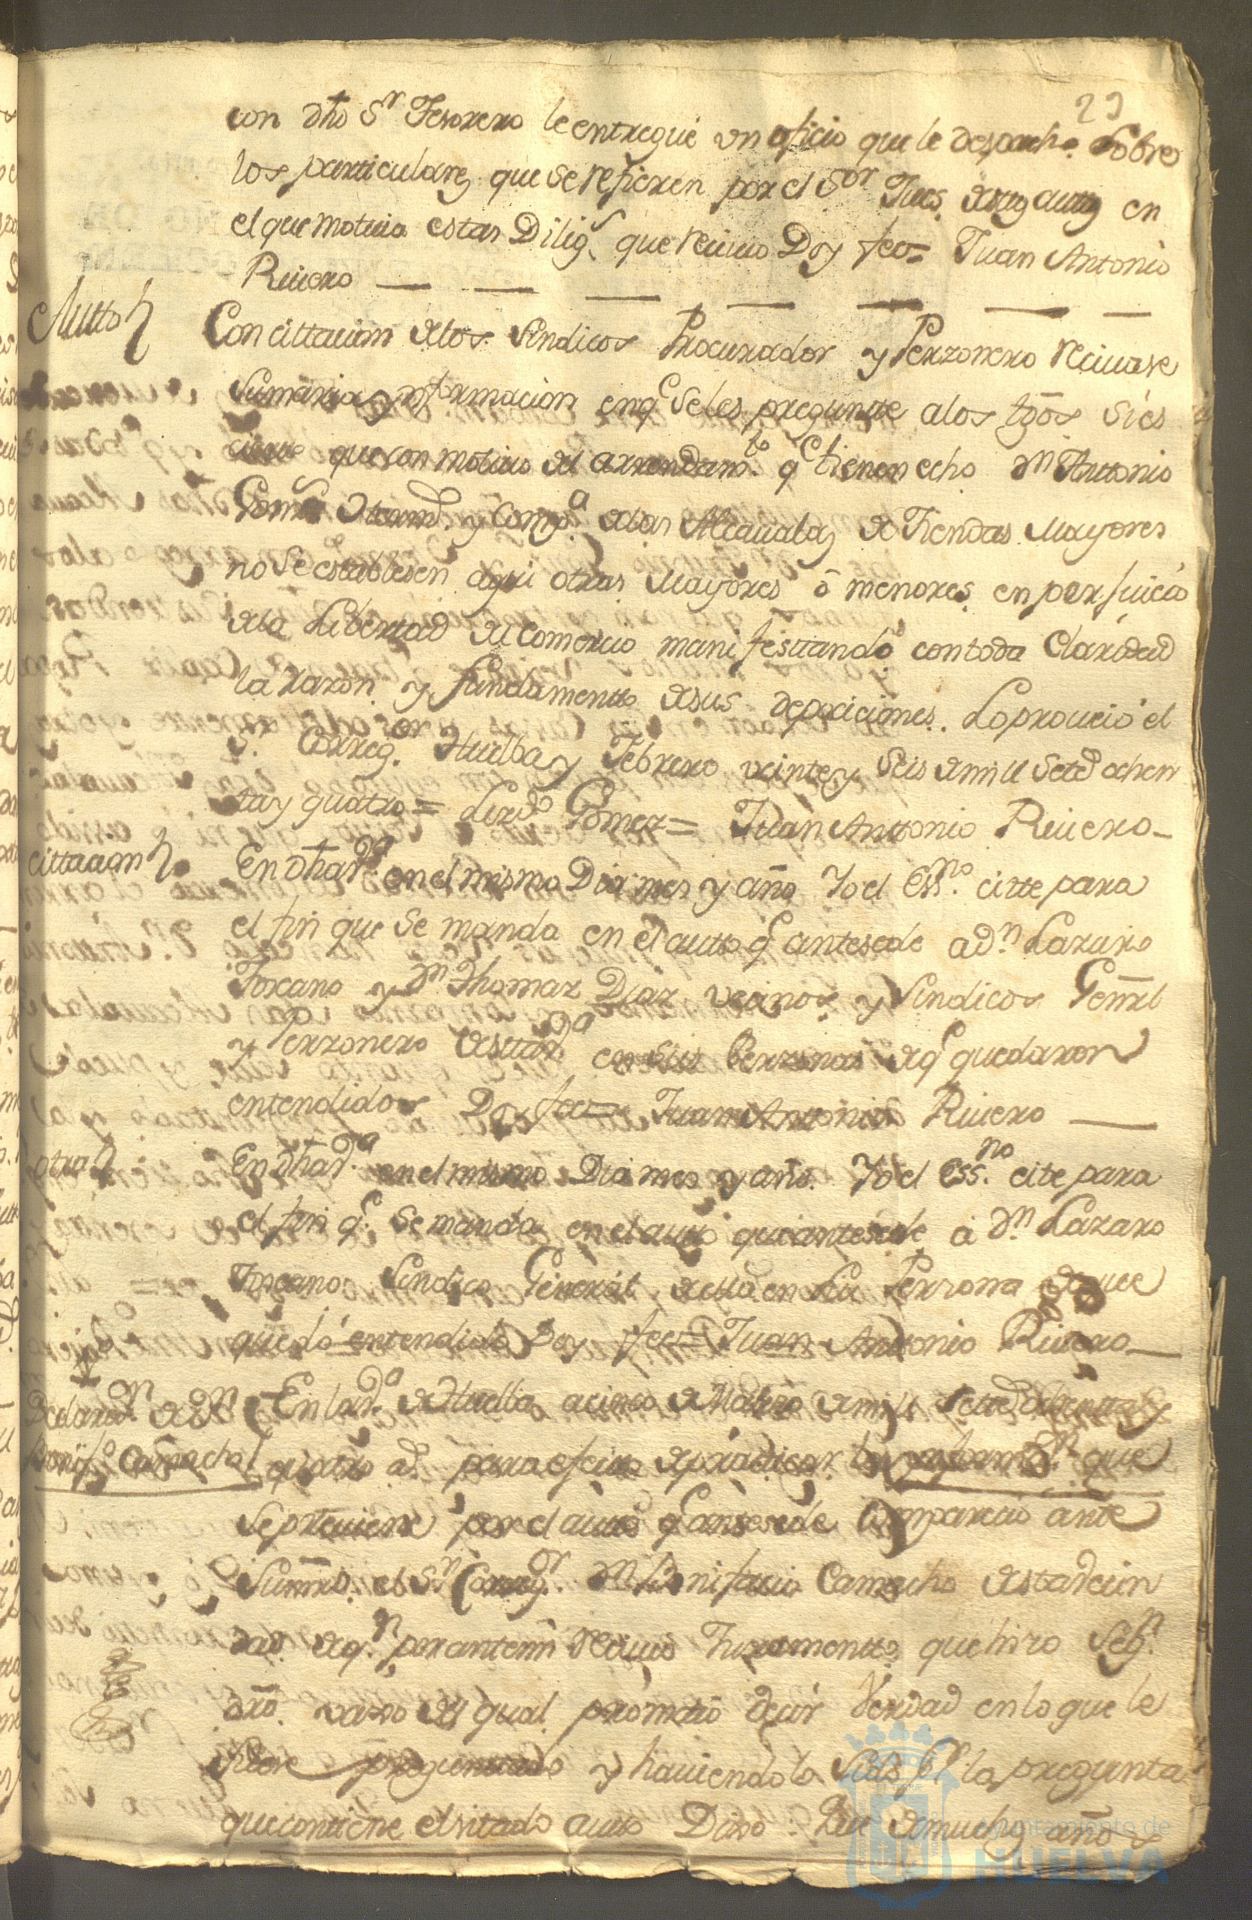 29
con dho Sr Tesorero le entregué un oficio que le despacho sobre
los particulares que se refieren por el Sor Jues en
el que motivo estas Dilig.s que recivio Doy fee= Juan Antonio
Rivero
Autto
Con cittacion alos Sindicos Procurador y Perzonero recivase
sumaria ynformacion enq.e seles pregunte alos tgos si es
cierto que con motivo del arrendam.to q.e tienen echo Dn Anttonio
y Comp.a delas Alcavalas de Tiendas Mayores
no se establesen aqui otras Mayores ô menores en perjuicio
dela Libertad del Comercio manifesttando con toda Claridad
la razon y fundamento desus deposiciones. Lo proveió el
S.or Correg.or Huelba y Febrero veinte y seis de mill seted ochen
ta y quatro= Lizdo Gomez= Juan Antonio Rivero
cittacion
En dha v.a en el mismo Dia mes y año Yo el Ess.no citte para
el fin que se manda en el autto q.e antesede a Dn Lazaro
Toscano y Dn Thomas Diaz vecinos y Sindicos Genrl
y Perzonero destta v.a en sus Perzonas deq.e quedaron
entendidos Doy fee= Juan Anttonio Rivero
otra
En dha v.a en el mismo Dia mes y año Yo el Ess.no cite para
el fin q.e se manda en el autto que antesede á Dn Lazaro
Toscano Sindico General de ella en su Perzona de que
quedó entendido Doy fee= Juan Antonio Rivero
Declaraz.n de Dn
Bonif.o Camacho
En la v.a de Huelba a cinco de Marzo de mill setted ochentta y
quatro a.s para efecto de practicar la ynformaz.n que
se previene por el autto q.e antesede comparecio ante
Su mrd. el S.or Correg.or Dn Bonifacio Camacho desta vecin
dad deq.n por antemi recivio Juramentto que hizo seg.n
dro. vaxo del qual prometió decir verdad en lo que le
fuere preguntado y haviendolo sido p.r la pregunta
que contiene el sitado autto Dixo: Que demuchos años
Ayuntamiento de
HUELVA